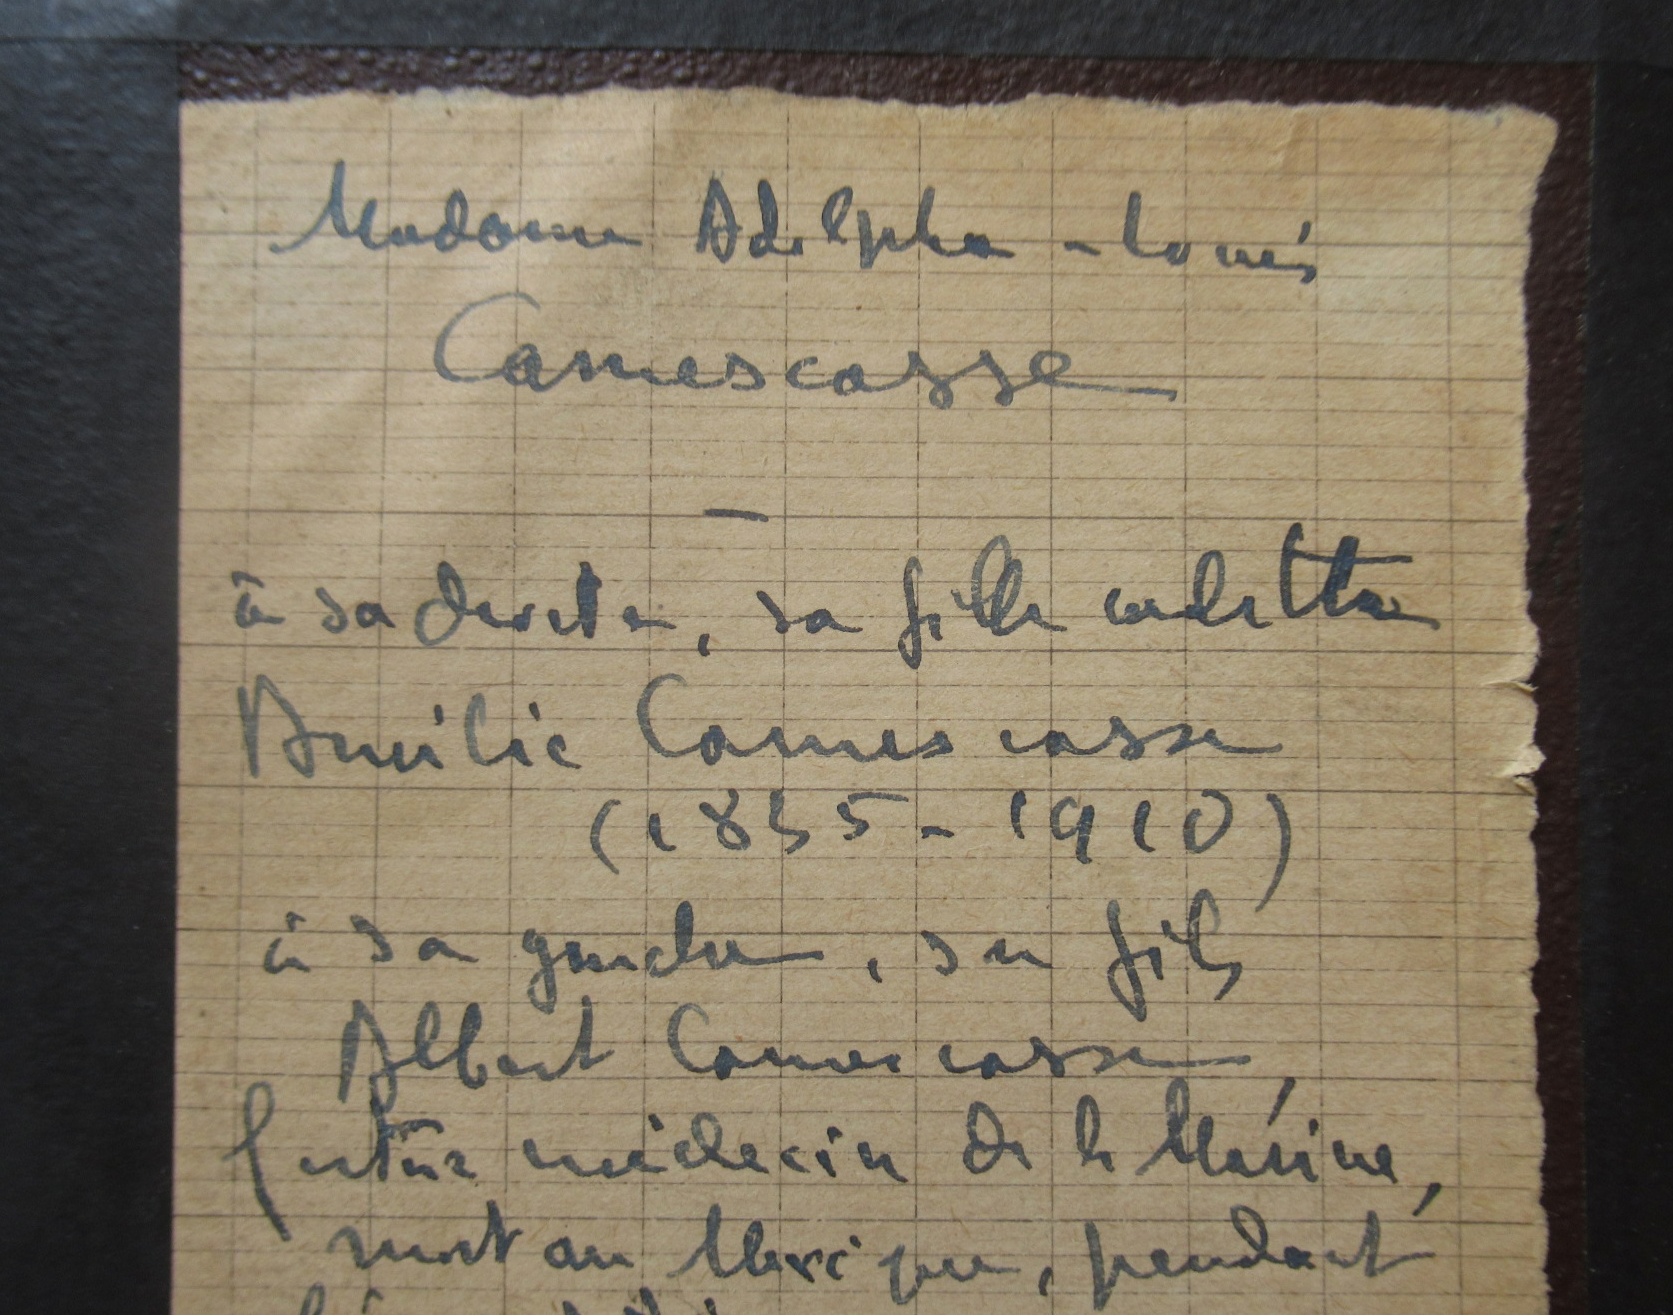 Madame Adolphe-Louis
Camescasse
—
à sa droite, sa fille cadette
Amélie Camescasse
(1835-1910)
à sa gauche, son fils
Albert Camescasse,
futur médecin de la Marine,
mort au Mexique, pendant